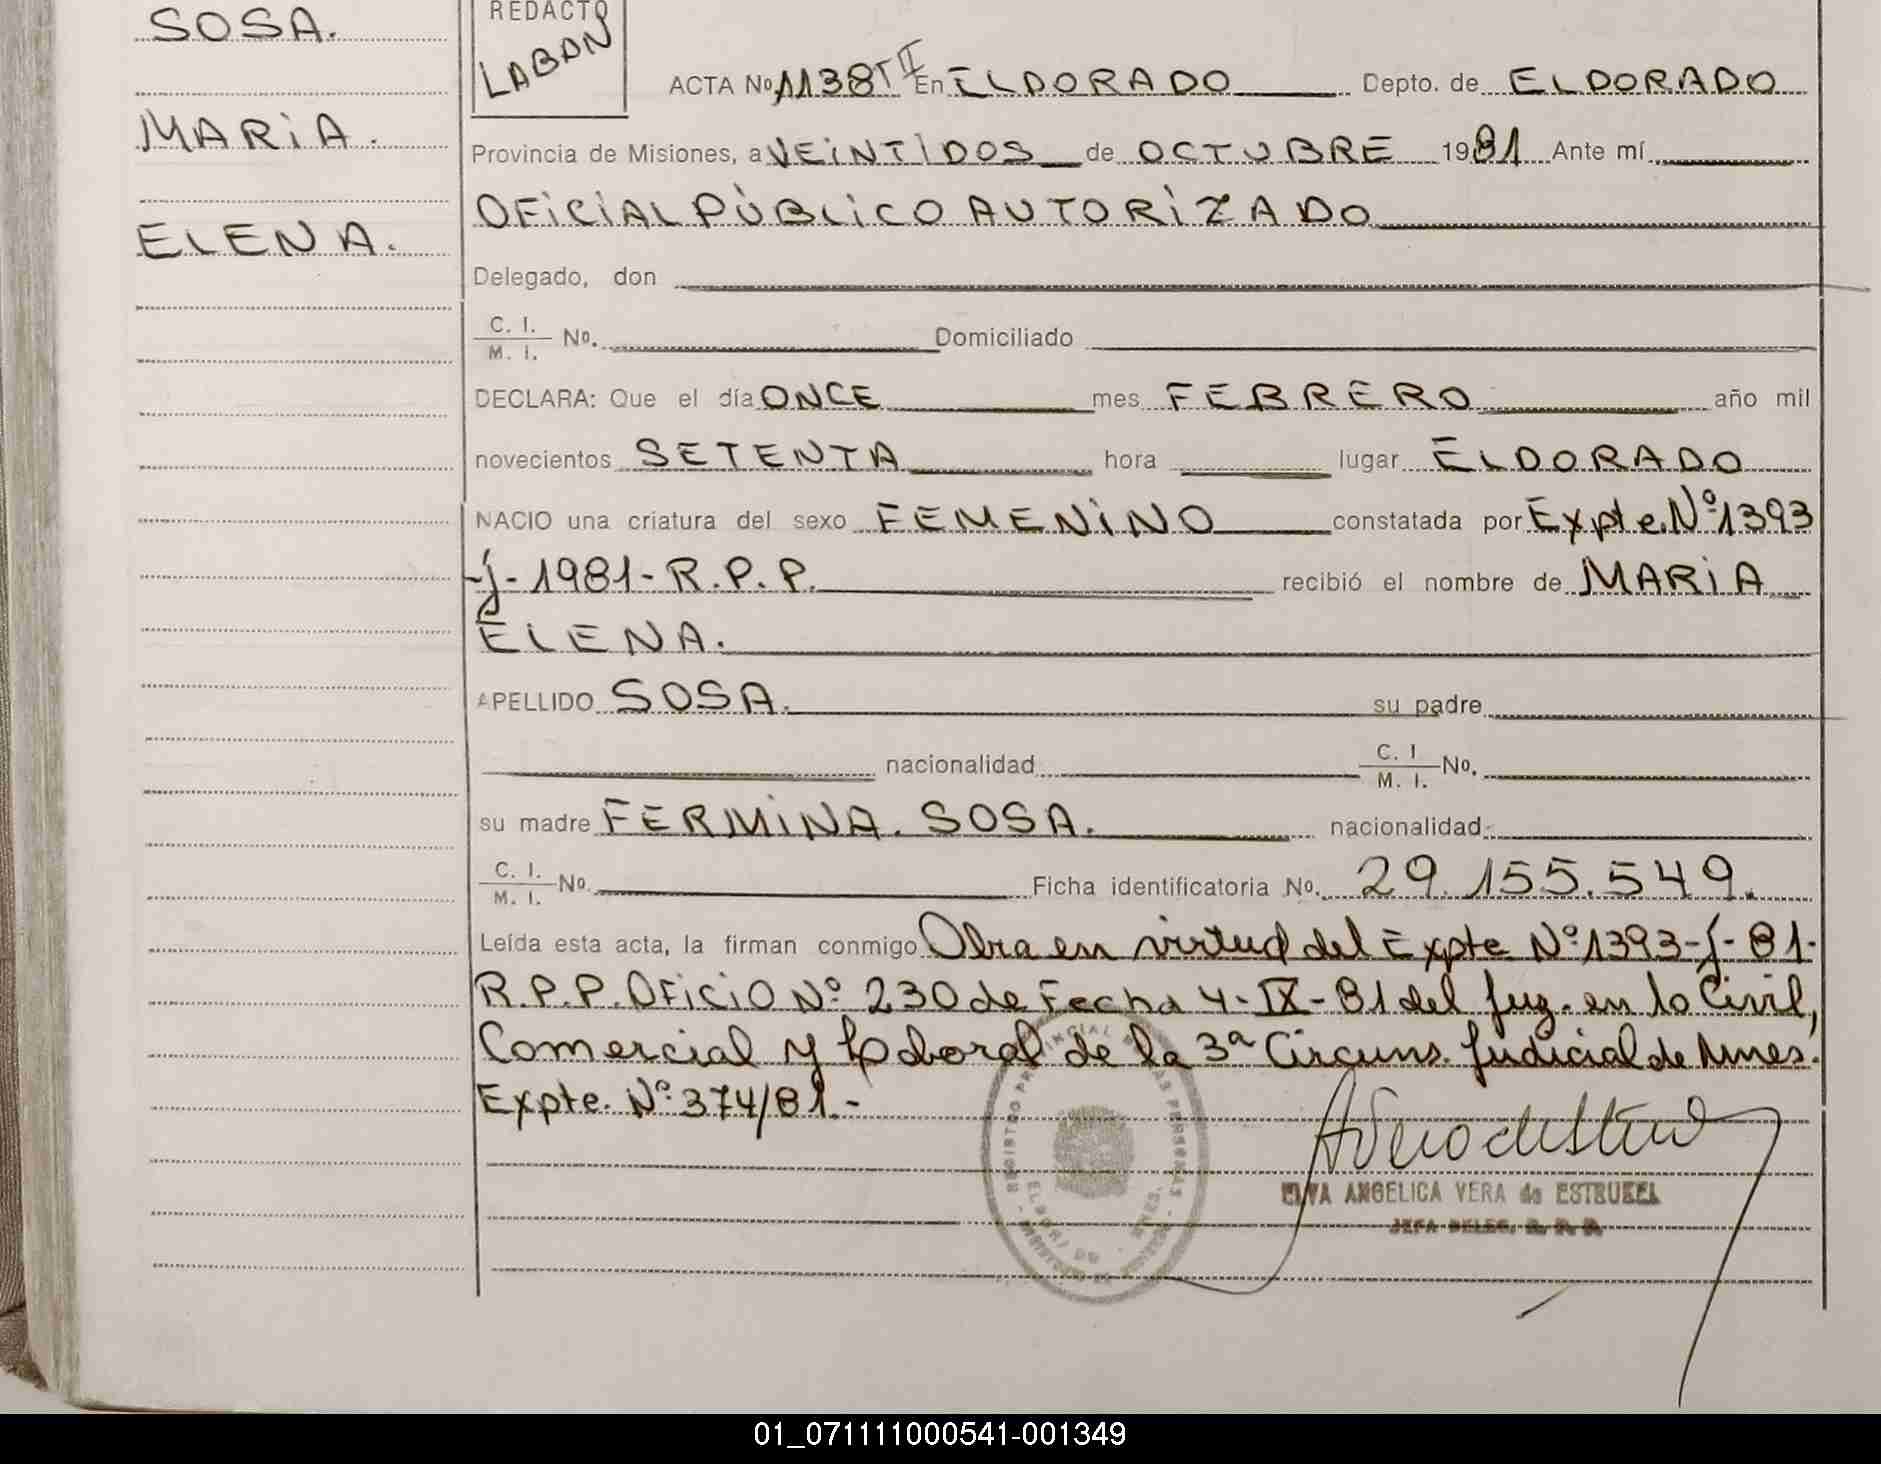 SOSA.
MARIA.
ELENA.
REDACTO
LABAN
ACTA Nº 1138 T II En ELDORADO Depto. de ELDORADO
Provincia de Misiones, a VEINTIDOS de OCTUBRE 1981 Ante mí
OFICIAL PÚBLICO AUTORIZADO
Delegado, don
C. I. / M. I. Nº. Domiciliado
DECLARA: Que el día ONCE mes FEBRERO año mil
novecientos SETENTA hora lugar ELDORADO
NACIO una criatura del sexo FEMENINO constatada por Expte. Nº 1393
-j-1981-R.P.P. recibió el nombre de MARIA
ELENA.
APELLIDO SOSA. su padre
nacionalidad C. I / M. I. Nº.
su madre FERMINA. SOSA. nacionalidad
C. I. / M. I. Nº. Ficha identificatoria Nº. 29.155.549.
Leída esta acta, la firman conmigo Obra en virtud del Expte Nº 1393-j-81-
R.P.P. OFICIO Nº 230 de Fecha 4-IX-81 del Juz. en lo Civil,
Comercial y Laboral de la 3ª Circuns. Judicial de Mnes.
Expte. Nº 374/81.-
ANGELICA VERA de ESTRUKEL
JEFA DELEG. R. P. P.
01_071111000541-001349